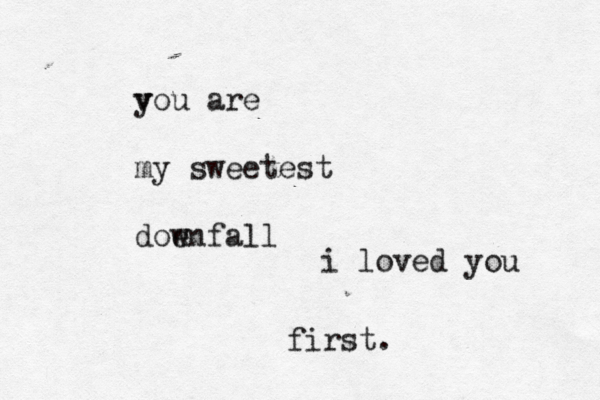 you are
my sweetest
downfall
i loved you
first.